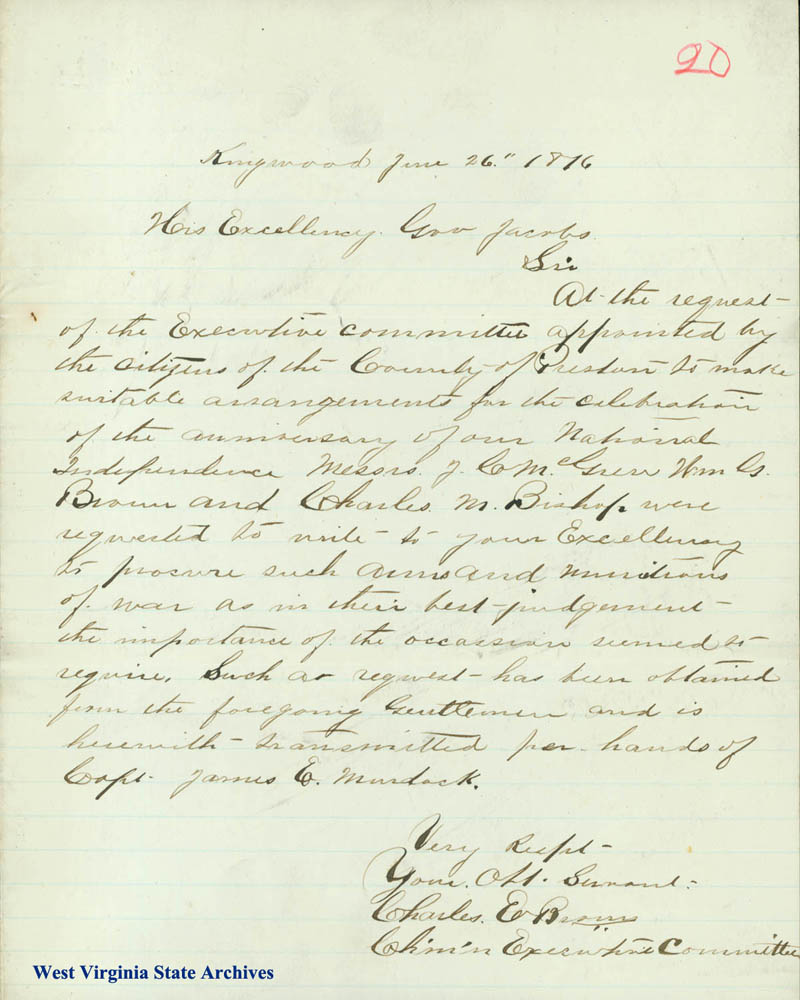 20
Kingwood June 26" 1876
His Excellency. Gov Jacobs
Sir
At the request
of the Executive committee appointed by
the citizens of the County of Preston to make
suitable arrangements for the celebration
of the anniversary of our National
Independence Messrs. J. C. McGrew Wm G.
Brown and Charles. M. Bishop were
requested to write to your Excellency
to procure such arms and munitions
of war as in their best judgement
the importance of the occassion seemed to
require. Such a request has been obtained
from the foregoing Gentlemen and is
herewith transmitted per hands of
Capt. James E. Murdock.
Very Respt
Your. Obt. Servant
Charles. E Brown
Chm'n Executive Committee
West Virginia State Archives